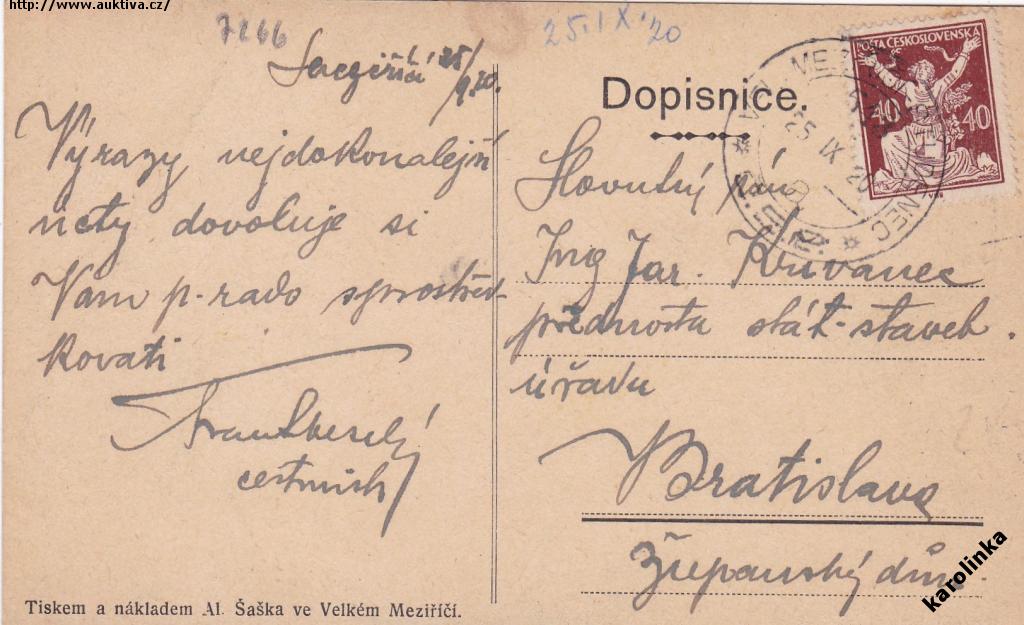 http://www.auktiva.cz/
7266
25.IX.'20
25/
9.20.
Výrazy nejdokonalejší
úcty dovoluje si
Vám p. rado sprostřed-
kovati
Dopisnice.
POŠTA ČESKOSLOVENSKÁ
40 40
25 IX 20
Slovutný pán
Ing Jar. Křivanec
přednosta stát. staveb.
úřadu
Bratislava
Župánský dům.
Tiskem a nákladem Al. Šaška ve Velkém Meziříčí.
karolinka